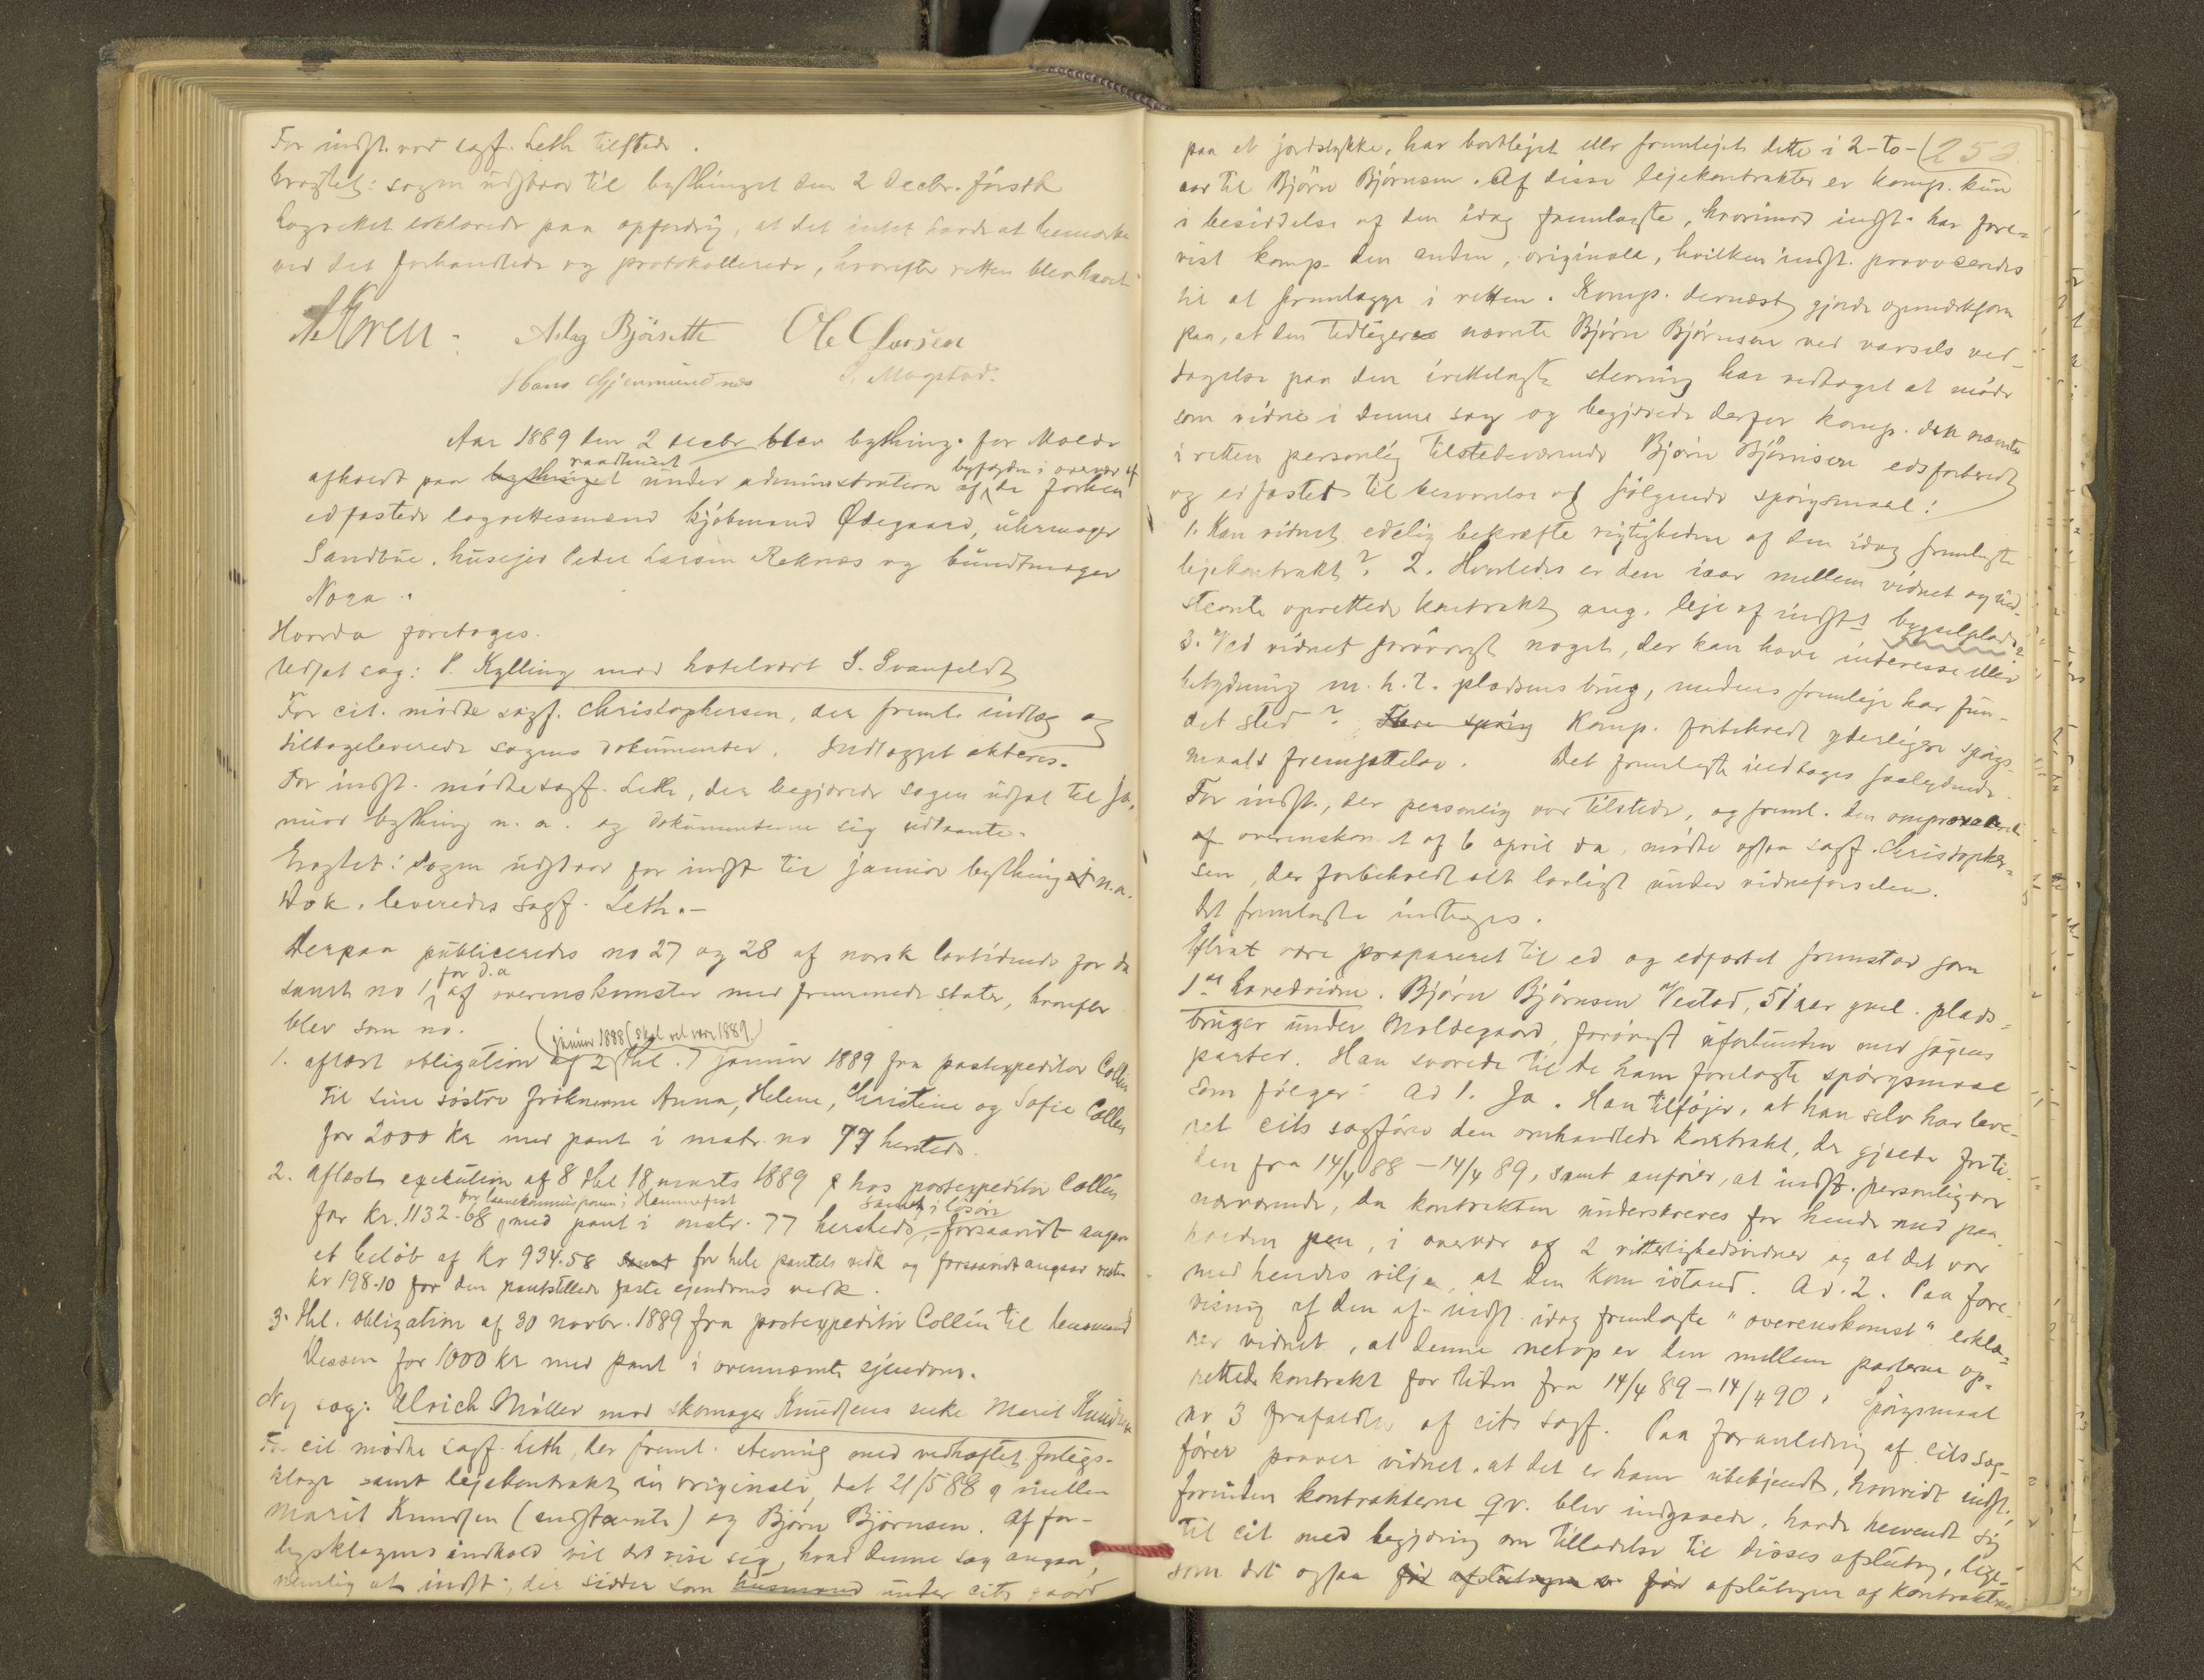 For indst. var sagf. Leth tilstede.
Eragtet: sagen udstaar til bythinget den 2 Decbr. førstk
Lagrettet erklærede paa opfordrig, at det intet havde at bemærke
ved det forhandlede og protokollerede, hvorefter retten blev hævet
Aslag Bjørsetth Ole Larsen
Hans Gjermundnes S. Magstad.
Aar 1889 den 2 decbr blev bything for Molde
afholdt paa bythinget raadhuset under administration af byfogden i overvær af de forhen
edfæstede lagrettesmænd kjøbmand Ødegaard, uhrmager
Sandbue, huseier Peder Larsen Reknes og bundtmager
Nora.
Hvorda foretoges.
Udsat sag: P. Kylling mod hotelvært S. Svanfeldt
For cit. mødte sagf. Christophersen, der freml. indlæg og
tilbageleverede sagens dokumenter. Indlægget akteres.
For indst. mødte sagf. Leth, der begjærede sagen udsat til ja-
nuar bything n. a. og dokumenterne sig udlaante.
Eragtet: Sagen udstaar for indst til januar bythinget n. a.
Dok. leveredes sagf. Leth.-
Derpaa publiceredes no 27 og 28 af norsk lovtidende for da
samt no 1 for d.a af overenskomster med fremmede stater, hvorefter
blev som no.
(januar 1888 (skal vel være 1889.)
1. aflæst obligation af 2 thl. 7 januar 1889 fra postexpeditør Collin
til sine søstre frøknerne Anna, Helene, Christine og Sofie Collin
for 2000 Kr med pant i matr. no 77 hersteds.
2. aflæst exekution af 8 thl 18 marts 1889 hos postexpeditør Collin
for laanekommissionen i Hammerfest samt i løsøre
for Kr. 1132-68 med pant i matr. 77 hersteds, - forsaavidt angaar
et beløb af Kr 934.58 samt for hele pantets vedk og forsaavidt angaar resten
Kr 198.10 for den pantstillede faste eiendoms vedk.
3. Thl. obligation af 30 novbr. 1889 fra postexpeditør Collin til lensmand
Dessen for 1000 Kr med pant i ovennævnte ejendom.
Ny sag: Ulrich Møller mod skomager Knudsens enke Marit Knudsen
For cit mødte sagf. Leth, der freml. stevning med vedhæftet forligs-
klage samt lejekontrakt in originali, dat 21/5 88 mellem
Marit Knudsen (indstevnte) og Bjørn Bjørnsen. Af for-
ligsklagens indhold vil det vise sig, hvad denne sag angaar,
nemlig at indst., der sidder som husmand under cits gaard
253.
paa et jordstykke, har bortlejet eller fremlejet dette i 2-to-
aar til Bjørn Bjørnsen. Af disse lejekontrakter er komp. kun
i besiddelse af den idag fremlagte, hvorimod indst. har fore-
vist komp. den anden, originale, hvilken indst. provoceredes
til at fremlægge i retten. Komp. dernæst gjorde opmærksom
paa, at den tidligere nævnte Bjørn Bjørnsen ved varsels ved-
tagelse paa den irettelagte stevning har vedtaget at møde
som vidne i denne sag og begjærede derfor komp. den nævnte
i retten personlig tilstedeværende Bjørn Bjørnsen edsforberedt
og edfæstet til besvarelse af følgende spørgsmaal:
1. Kan vidnet edelig bekræfte rigtigheden af den idag fremlagte
lejekontrakt? 2. Hvorledes er den iaar mellem vidnet og ind-
stevnte oprettede kontrakt ang. leje af indsts bygselplads?
3. Ved vidnet forøvrigt noget, der kan have interesse eller
betydning m. h. t. pladsens brug, medens fremleje har fun-
det sted? Flere spørg Komp. forbeholdt yderligere spørgs-
maals fremsættelse. Det fremlagte indtages saalydende.
For indst., der personlig var tilstede, og freml. den omprovocerede
af overenskomst af 6 april da, mødte ogsaa sagf. Christopher-
sen, der forbeholdt alt lovligt under vidneførselen.
Det fremlagte indtages.
Efterat være præpareret til ed og edfæstet fremstod som
1ste hovedvidne. Bjørn Bjørnsen Vestad, 51 aar gml. plads-
bruger under Moldegaard, forøvrigt uforbunden med sagens
parter. Han svarede til de ham forelagte spørgsmaal
som følger: ad 1. Ja. Han tilføjer, at han selv har leve-
ret cits sagfører den omhandlede kontrakt, der gjælder forti-
den fra 14/4 88 - 14/4 89, samt anfører, at indst. personlig var
nærværende, da kontrakten underskreves for hende med paa-
holden pen, i overvær af 2 vitterlighedsvidner og at det var
med hendes vilje, at den kom istand. Ad. 2. Paa fore-
visnig af den af indst. idag fremlagte "overenskomst" erklæ-
rer vidnet, at denne netop er den mellem parterne op-
rettede kontrakt for tiden fra 14/4 89 - 14/4 90. Spørgsmaal
nr 3 frafaldtes af cits sagf. Paa foranlednig af cits sag-
fører prover vidnet, at det er ham ubekjendt, hvorvidt indst.,
forinden kontrakterne qv. blev indgaaede, havde henvendt sig
til cit med begjæring om tilladelse til disses afslutng, lige-
som det ogsaa før afslutngen er før afslutngen af kontrakterne